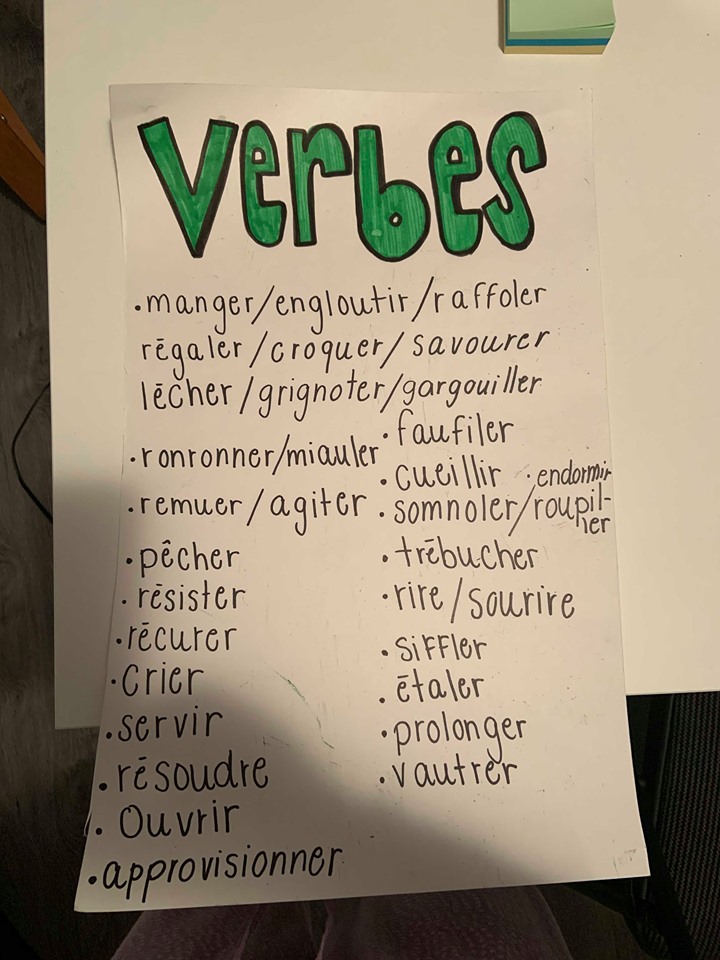 Verbes
•manger/engloutir/raffoler
régaler/croquer/savourer
lécher/grignoter/gargouiller
•ronronner/miauler
•remuer/agiter
•pêcher
•résister
•récurer
•crier
•servir
•résoudre
•ouvrir
•approvisionner
•faufiler
•cueillir •endormir
•somnoler/roupil-
ler
•trébucher
•rire/sourire
•siffler
•étaler
•prolonger
•vautrer